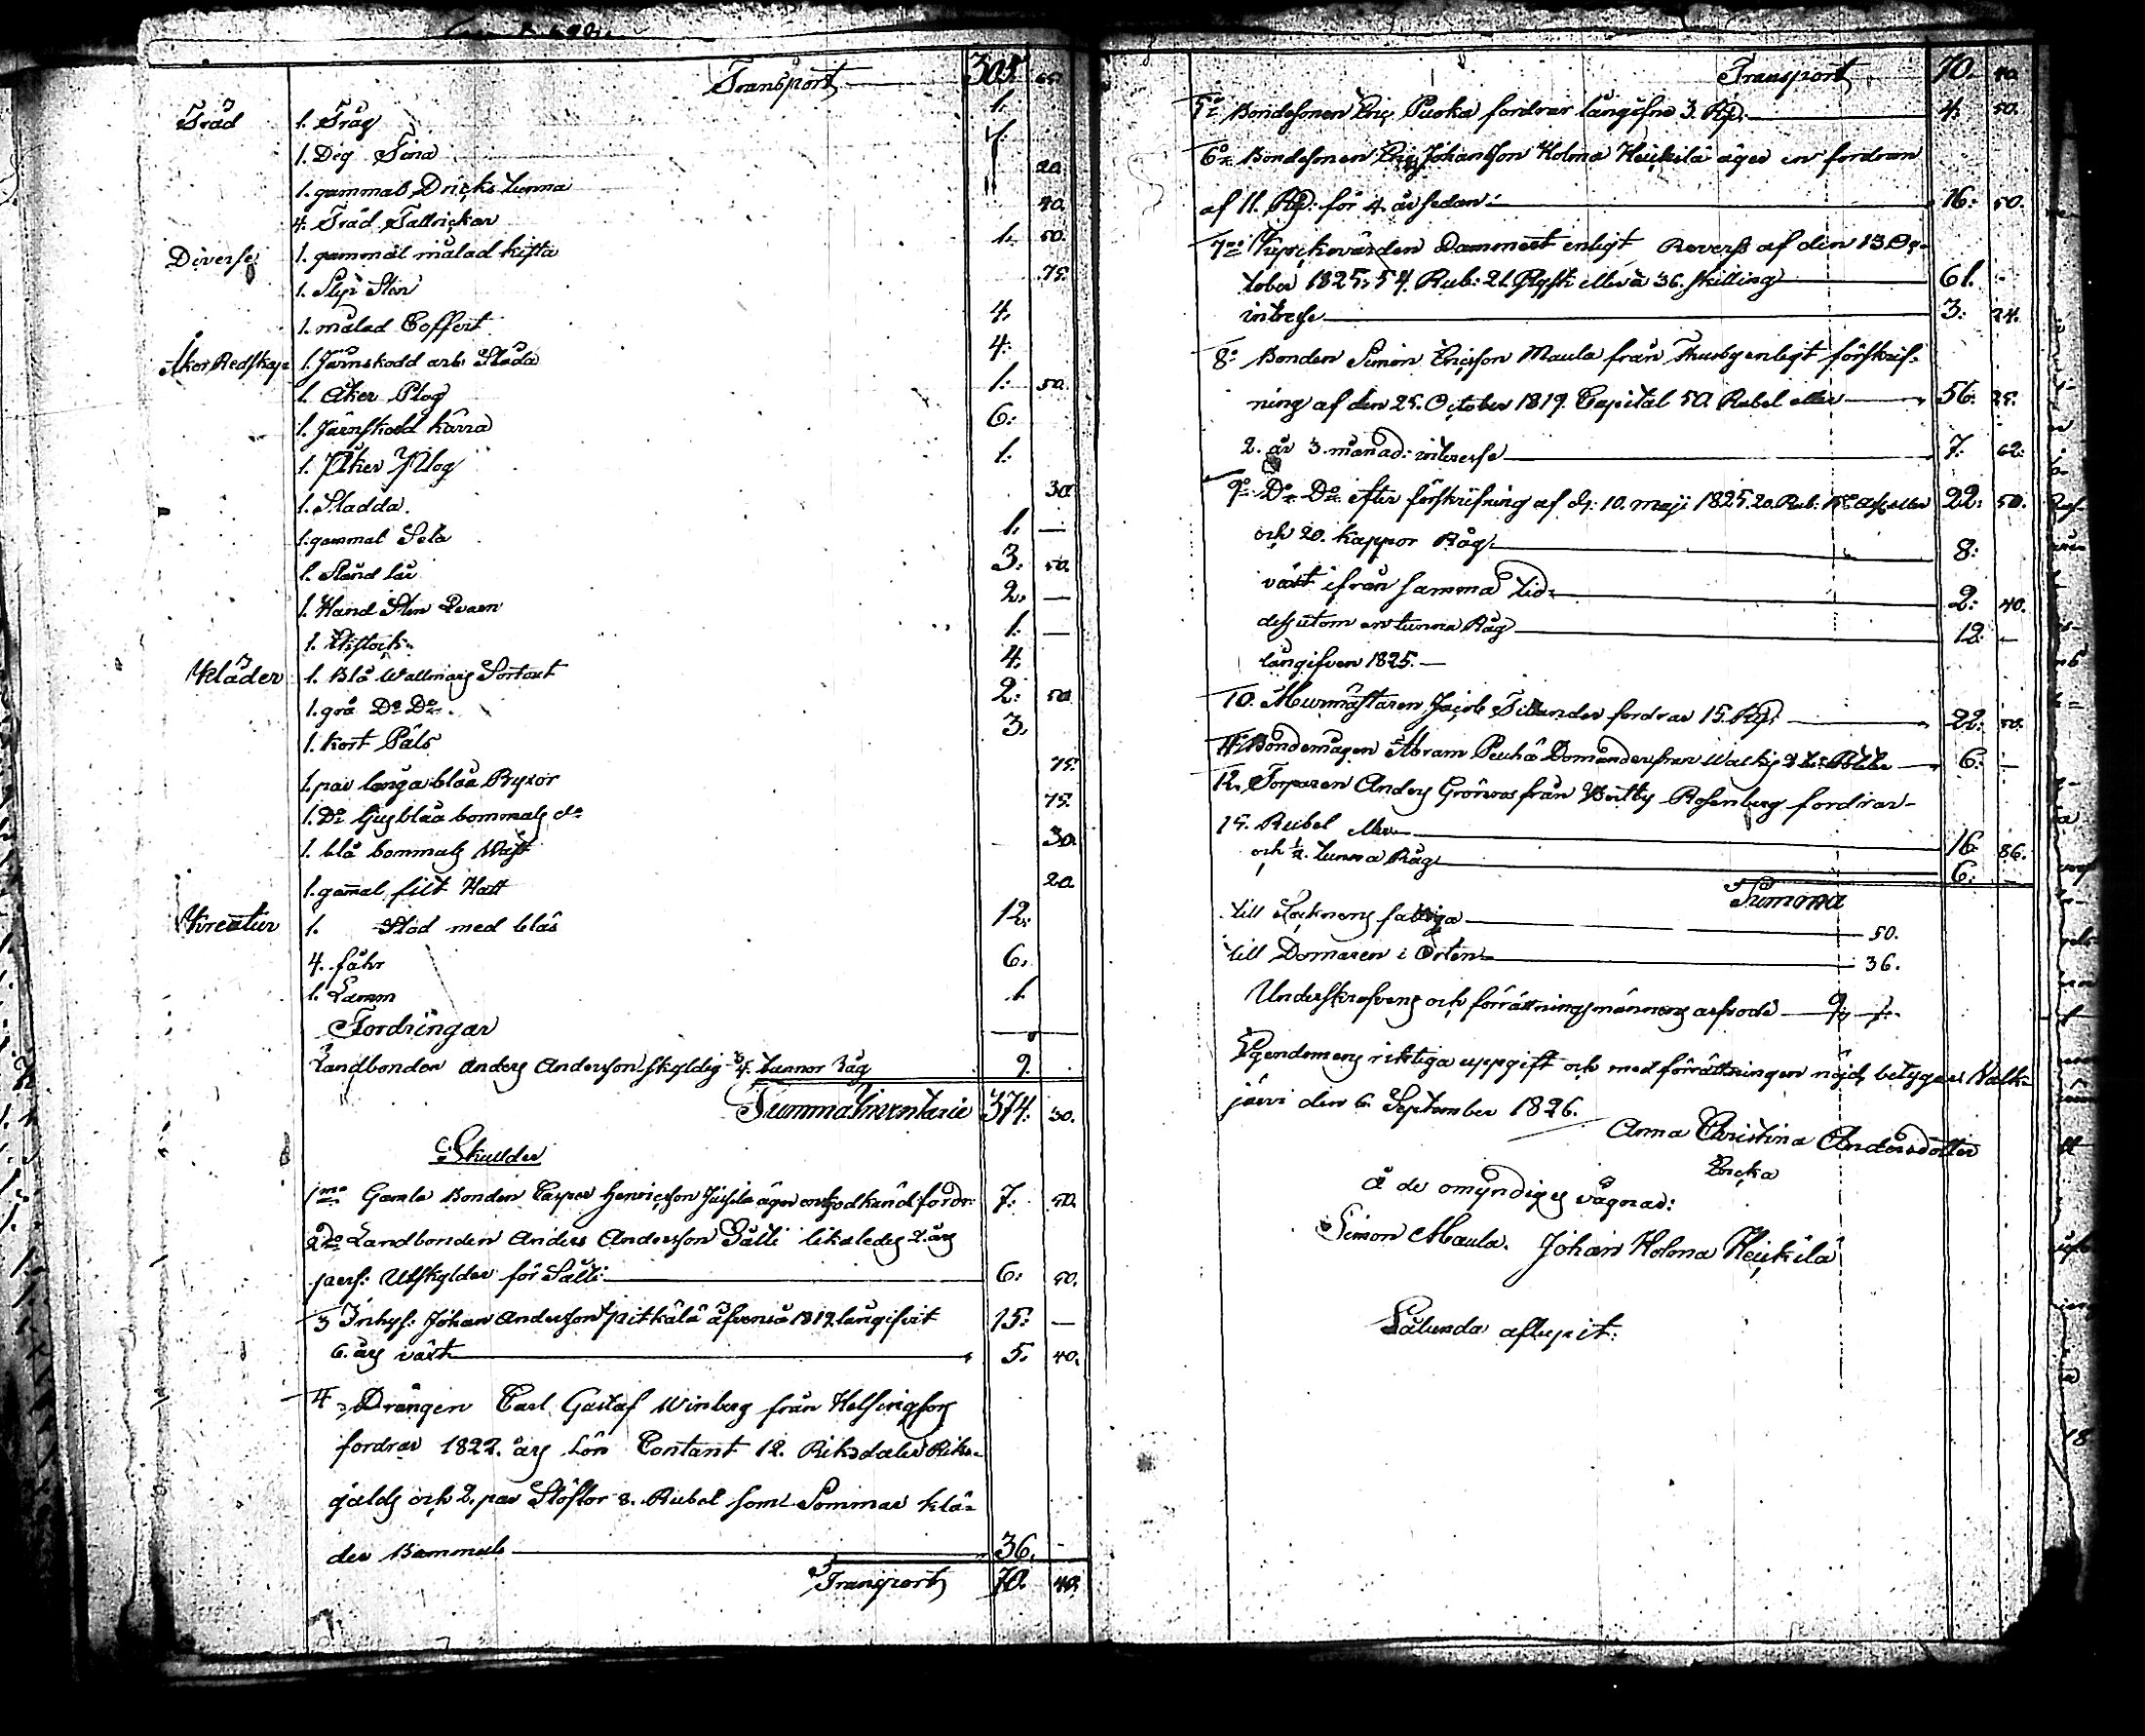 Transport 305. 65.
Träd 1. Tråg 1.
1. Deg Tina
1. gammal Dricks tunna 20.
4. Träd Tallrickar 40.
Diverse 1. gammal målad kista 1. 50.
1. Slip Sten 75.
1. målad Coffert 4.
Åker Redskap 1. Järnskodd arb. Släda 4.
1. Åker Plog 1. 50.
1. Järnskodd kärra 6.
1. Åker Plog 1.
1. Sladda. 30.
1. gammal Sela 1. —
1. Ständ lår 3. 50.
1. Hand Sten Qvarn 2. —
1. —
Kläder 1. Blå Wallmars Sortout 4.
1. grå Do Do. 2. 50.
1. kort Päls 3.
1. par långa blåa Byxor 75.
1. Do ljusblåa bommals do 75.
1. blå bommals Wäst 30.
1. gamal filt Hatt 20.
Kreatur 1. Stod med bläs 12.
4. fåhr 6.
1. Lamm 1.
Fordringar
Landbonden Anders Andersson skyldig 3/4. tunnor Råg 9.
Summa Inventarie 374. 30.
Skulder
1mo Gamla Bonden Casper Henricsson Jussila äger en godkänd fordr: 7. 50.
2do Landbonden Anders Andersson Sälli likaledes 2. års
pers: Utskylder för Sälli 6. 50.
3 Inhys: Johan Andersson Pitkälä äfvenså 1819 långifvit 15. —
6. års växt 5. 40.
4. Drängen Carl Gustaf Winberg från Helsingfors
fordrar 1822. års lön Contant 12. Riksdaler Riks-
gälds och 2. par Stöflor 8. Rubel samt Sommar klä-
der Bommuls 36.
Transport 70. 40.
Transport 70. 40.
5o Bondesonen Eric Puska fordrar långifne 3. Rd: 4. 50.
6o Bondesonen Eric Johansson Holma Heickilä äger en fordran
af 11. Rd: för 4. år sedan 16. 50.
7mo Kyrckovärden Dammert enligt Revers af den 13 Oc-
tober 1825. 54. Rub: 21. Rgsk eller à 36. skilling 61.
intresse 3. 24.
8o Bonden Simon Ericsson Maula från Thusby enligt förskrif-
ning af den 25. October 1819. Capital 50. Rubel eller 56. 25.
2. år 3. månad: interesse 7. 62.
9o Do Do efter förskrifning af d: 10. maji 1825. 20. Rub: eller 22. 50.
och 20. kappor Råg 8.
växt ifrån samma tid 2. 40.
dessutom en tunna Råg 12. —
långifven 1825. —
10. Murmästaren Jacob Tilander fordrar 15. Rd: 22. 50.
11. Bondemågen Abram Domander från 6. —
12. Torparen Anders Grönroos från Rosenberg fordrar
15. Rubel eller 16. 86.
och 1/2. tunna Råg 6. —
Summa
till Socknens fattiga 50.
till Domaren i Orten 36.
Underskrefvens och förrättningsmännens arfvode
Egendomens riktiga uppgift och med förrättningen nöjd, betygar Valk-
järvi den 6. September 1826.
Anna Christina Andersdotter
Encka
å de omyndiges vägnar:
Simon Maula. Johan Holma Heickilä
Sålunda aflupit: